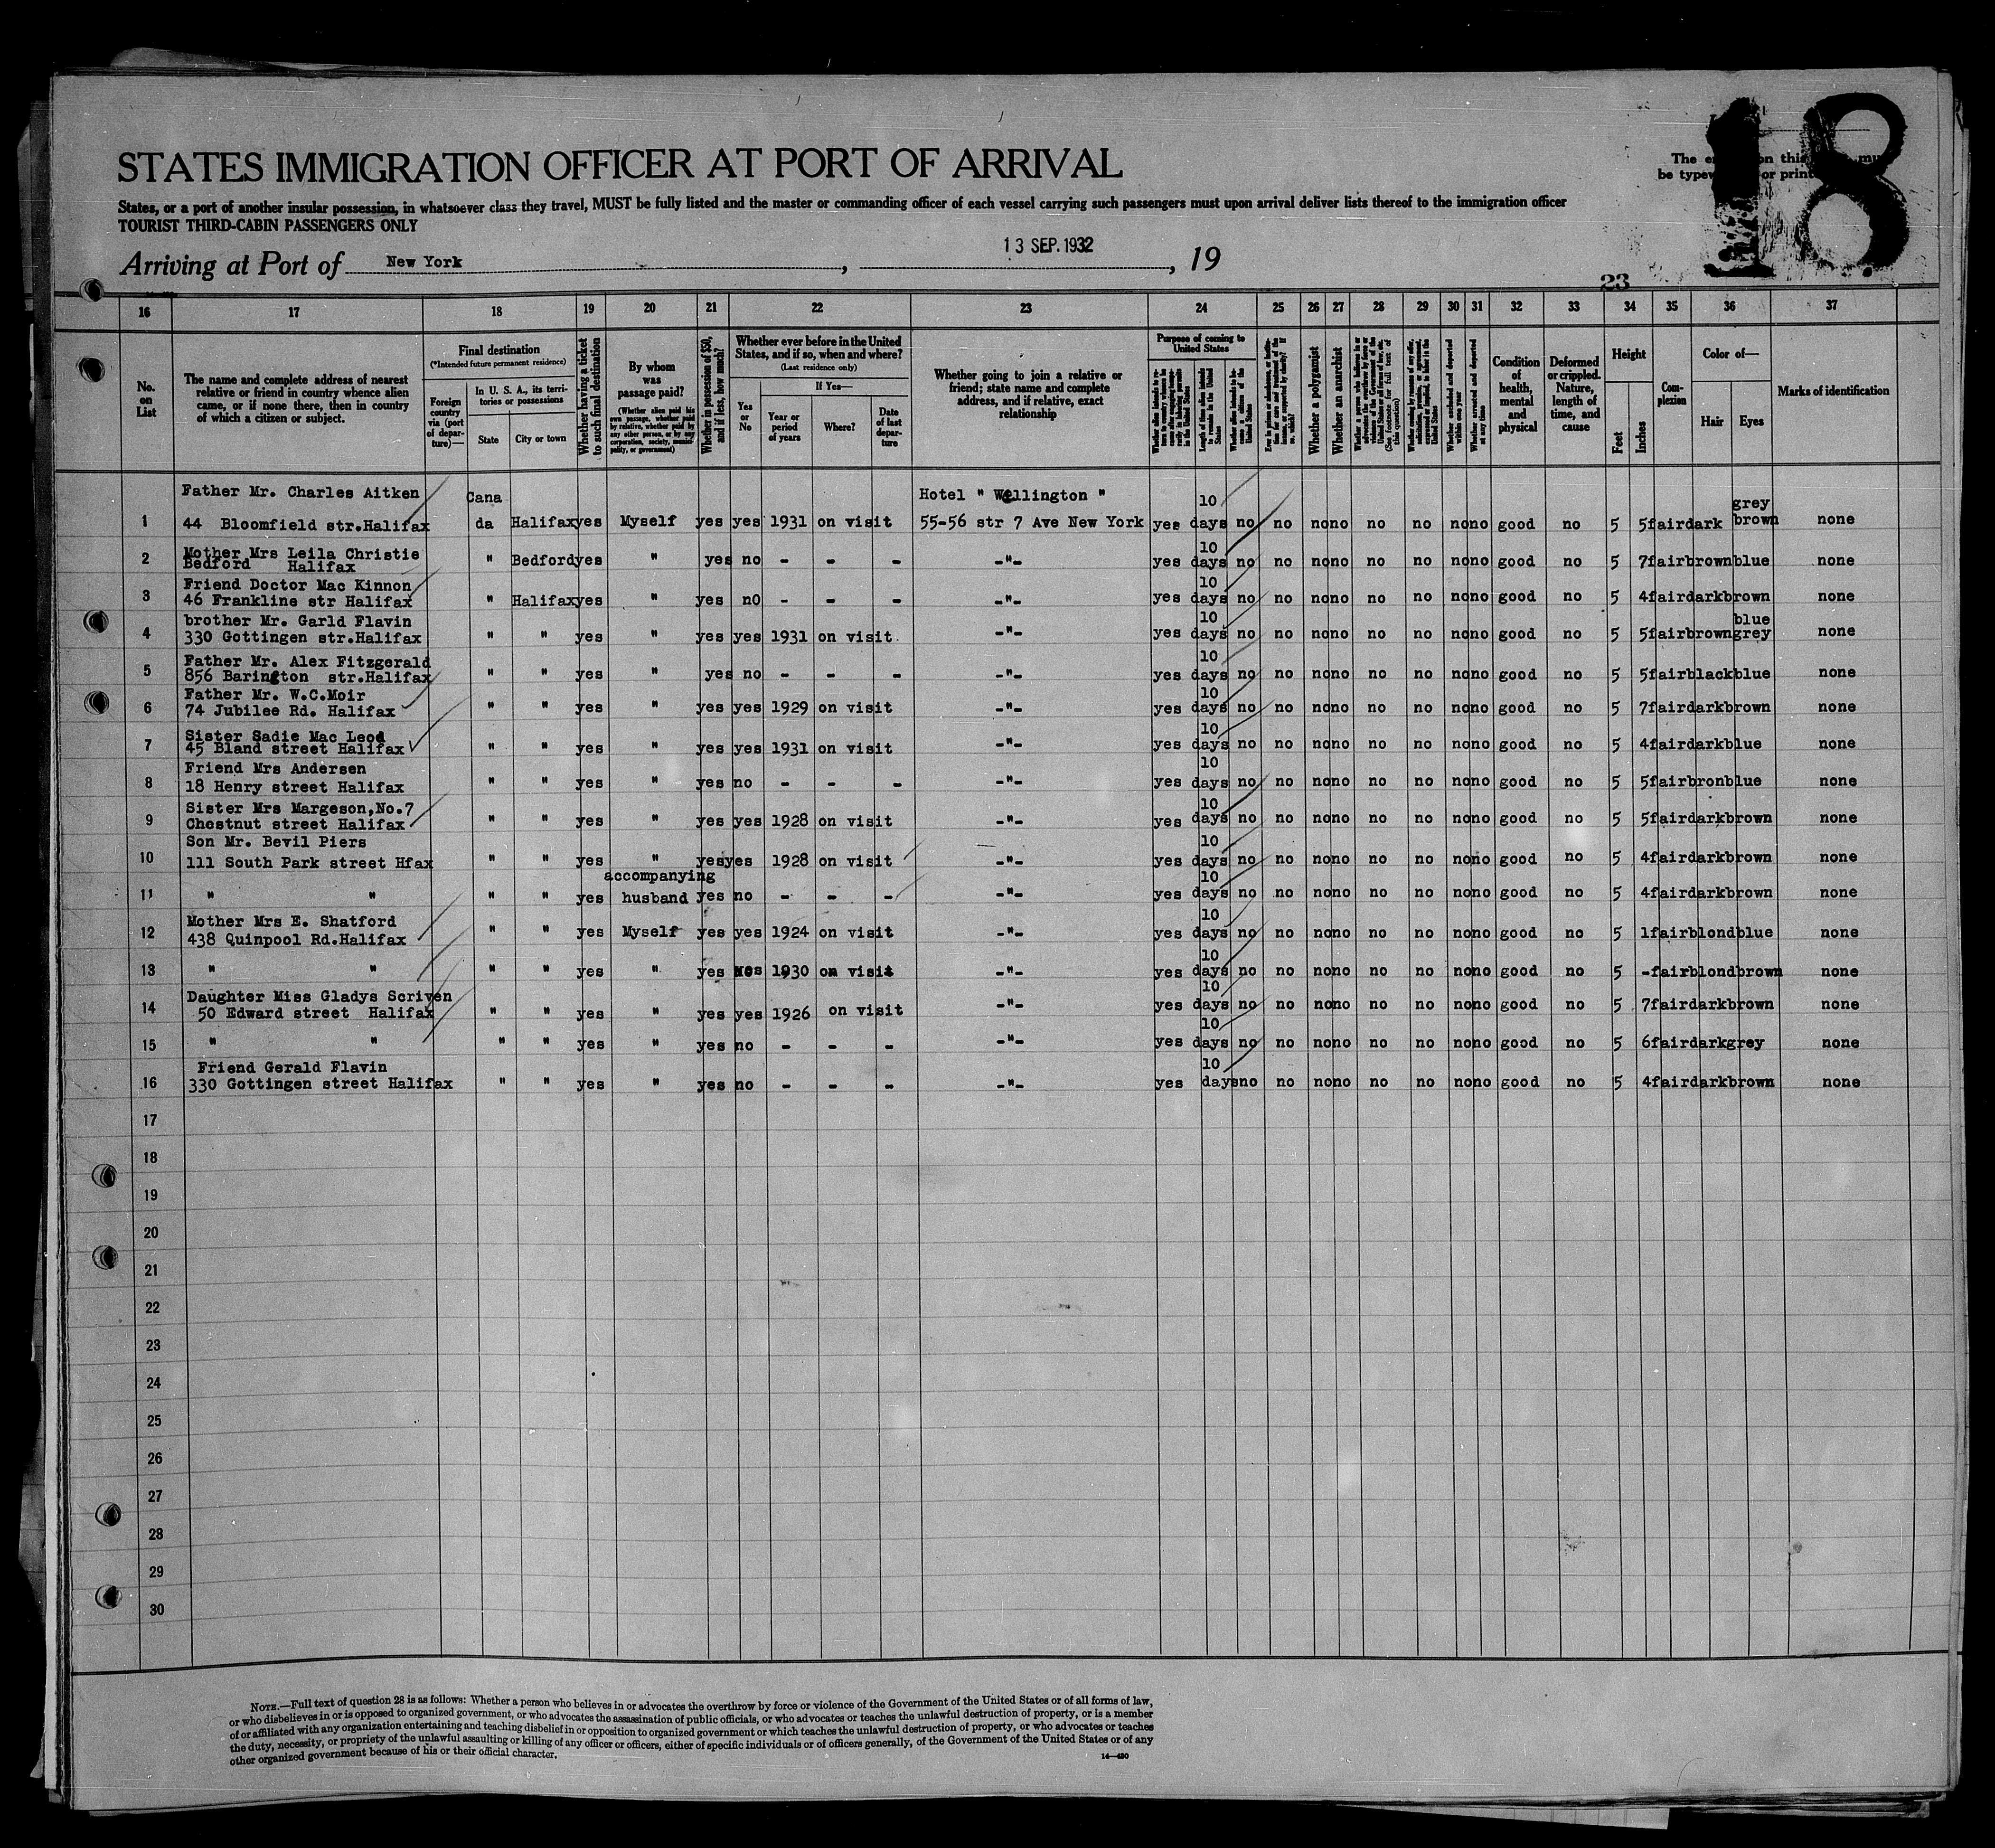 18
STATES IMMIGRATION OFFICER AT PORT OF ARRIVAL
The on this
be or print
States, or a port of another insular possession, in whatsoever class they travel, MUST be fully listed and the master or commanding officer of each vessel carrying such passengers must upon arrival deliver lists thereof to the immigration officer
TOURIST THIRD-CABIN PASSENGERS ONLY
Arriving at Port of New York, 13 SEP. 1932, 19
23
16 17 18 19 20 21 22 23 24 25 26 27 28 29 30 31 32 33 34 35 36 37
No. on List
The name and complete address of nearest relative or friend in country whence alien came, or if none there, then in country of which a citizen or subject.
Final destination
(*Intended future permanent residence)
Foreign country via (port of departure)—
In U. S. A., its territories or possessions
State
City or town
Whether having a ticket to such final destination
By whom was passage paid?
(Whether alien paid his own passage, whether paid by relative, whether paid by any other person, or by any corporation, society, municipality, or government)
Whether in possession of $50, and if less, how much?
Whether ever before in the United States, and if so, when and where?
(Last residence only)
Yes or No
If Yes—
Year or period of years
Where?
Date of last departure
Whether going to join a relative or friend; state name and complete address, and if relative, exact relationship
Purpose of coming to United States
Length of time alien intends to remain in the United States
Whether alien intends to become a citizen of the United States
Whether a polygamist
Whether an anarchist
(See footnote for full text of this question)
Whether excluded and deported within one year
Whether arrested and deported at any time
Condition of health, mental and physical
Deformed or crippled. Nature, length of time, and cause
Height
Feet
Inches
Complexion
Color of—
Hair
Eyes
Marks of identification
Father Mr. Charles Aitken Cana Hotel " Wellington " 10 grey
1 44 Bloomfield str.Halifax da Halifax yes Myself yes yes 1931 on visit 55-56 str 7 Ave New York yes days no no no no no no no no good no 5 5 fair dark brown none
Mother Mrs Leila Christie 10
2 Bedford Halifax " Bedford yes " yes no - - - -"- yes days no no no no no no no no good no 5 7 fair brown blue none
Friend Doctor Mac Kinnon 10
3 46 Frankline str Halifax " Halifax yes " yes no - - - -"- yes days no no no no no no no no good no 5 4 fair dark brown none
brother Mr. Garld Flavin 10 blue
4 330 Gottingen str.Halifax " " yes " yes yes 1931 on visit. -"- yes days no no no no no no no no good no 5 5 fair brown grey none
Father Mr. Alex Fitzgerald 10
5 856 Barington str.Halifax " " yes " yes no - - - -"- yes days no no no no no no no no good no 5 5 fair black blue none
Father Mr. W.C.Moir 10
6 74 Jubilee Rd. Halifax " " yes " yes yes 1929 on visit -"- yes days no no no no no no no no good no 5 7 fair dark brown none
Sister Sadie Mac Leod 10
7 45 Bland street Halifax " " yes " yes yes 1931 on visit -"- yes days no no no no no no no no good no 5 4 fair dark blue none
Friend Mrs Andersen 10
8 18 Henry street Halifax " " yes " yes no - - - -"- yes days no no no no no no no no good no 5 5 fair bron blue none
Sister Mrs Margeson,No.7 10
9 Chestnut street Halifax " " yes " yes yes 1928 on visit -"- yes days no no no no no no no no good no 5 5 fair dark brown none
Son Mr. Bevil Piers 10
10 111 South Park street Hfax " " yes " yes yes 1928 on visit -"- yes days no no no no no no no no good no 5 4 fair dark brown none
accompanying 10
11 " " " " yes husband yes no - - - -"- yes days no no no no no no no no good no 5 4 fair dark brown none
Mother Mrs E. Shatford 10
12 438 Quinpool Rd.Halifax " " yes Myself yes yes 1924 on visit -"- yes days no no no no no no no no good no 5 1 fair blond blue none
10
13 " " " " yes " yes yes 1930 on visit -"- yes days no no no no no no no no good no 5 - fair blond brown none
Daughter Miss Gladys Scriven 10
14 50 Edward street Halifax " " yes " yes yes 1926 on visit -"- yes days no no no no no no no no good no 5 7 fair dark brown none
10
15 " " " " yes " yes no - - - -"- yes days no no no no no no no no good no 5 6 fair dark grey none
Friend Gerald Flavin 10
16 330 Gottingen street Halifax " " yes " yes no - - - -"- yes days no no no no no no no no good no 5 4 fair dark brown none
17
18
19
20
21
22
23
24
25
26
27
28
29
30
NOTE.—Full text of question 28 is as follows: Whether a person who believes in or advocates the overthrow by force or violence of the Government of the United States or of all forms of law,
or who disbelieves in or is opposed to organized government, or who advocates the assassination of public officials, or who advocates or teaches the unlawful destruction of property, or is a member
of or affiliated with any organization entertaining and teaching disbelief in or opposition to organized government or which teaches the unlawful destruction of property, or who advocates or teaches
the duty, necessity, or propriety of the unlawful assaulting or killing of any officer or officers, either of specific individuals or of officers generally, of the Government of the United States or of any
other organized government because of his or their official character.
14—430